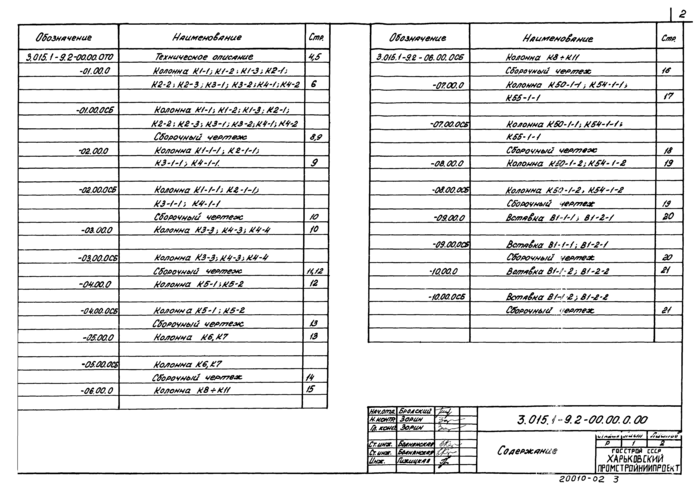 2
Обозначение Наименование Стр.
3.015.1-9.2-00.00.0ТО Техническое описание 4,5
-01.00.0 Колонна К1-1; К1-2; К1-3; К2-1;
К2-2; К2-3; К3-1; К3-2; К4-1; К4-2 6
-01.00.0СБ Колонна К1-1; К1-2; К1-3; К2-1;
К2-2; К2-3; К3-1; К3-2; К4-1; К4-2
Сборочный чертеж 8,9
-02.00.0 Колонна К1-1-1; К2-1-1;
К3-1-1; К4-1-1. 9
-02.00.0СБ Колонна К1-1-1; К2-1-1;
К3-1-1; К4-1-1
Сборочный чертеж 10
-03.00.0 Колонна К3-3; К4-3; К4-4 10
-03.00.0СБ Колонна К3-3; К4-3; К4-4
Сборочный чертеж 11,12
-04.00.0 Колонна К5-1; К5-2 12
-04.00.0СБ Колонна К5-1; К5-2
Сборочный чертеж 13
-05.00.0 Колонна К6, К7 13
-05.00.0СБ Колонна К6, К7
Сборочный чертеж 14
-06.00.0 Колонна К8÷К11 15
Обозначение Наименование Стр.
3.015.1-9.2-06.00.0СБ Колонна К8÷К11
Сборочный чертеж 16
-07.00.0 Колонна К50-1-1; К54-1-1;
К55-1-1 17
-07.00.0СБ Колонна К50-1-1; К54-1-1;
К55-1-1
Сборочный чертеж 18
-08.00.0 Колонна К50-1-2; К54-1-2 19
-08.00.0СБ Колонна К50-1-2; К54-1-2
Сборочный чертеж 19
-09.00.0 Вставка В1-1-1; В1-2-1 20
-09.00.0СБ Вставка В1-1-1; В1-2-1
Сборочный чертеж 20
-10.00.0 Вставка В1-1-2; В1-2-2 21
-10.00.0СБ Вставка В1-1-2; В1-2-2
Сборочный чертеж 21
Нач.отд. Бродский
Н.контр. Зорин
Гл. конс. Зорин
Ст.инж.
Ст.инж.
Инж.
3.015.1-9.2-00.00.0.00
Содержание
Р 1 2
ГОССТРОЙ СССР
ХАРЬКОВСКИЙ
ПРОМСТРОЙНИИПРОЕКТ
20010-02 3